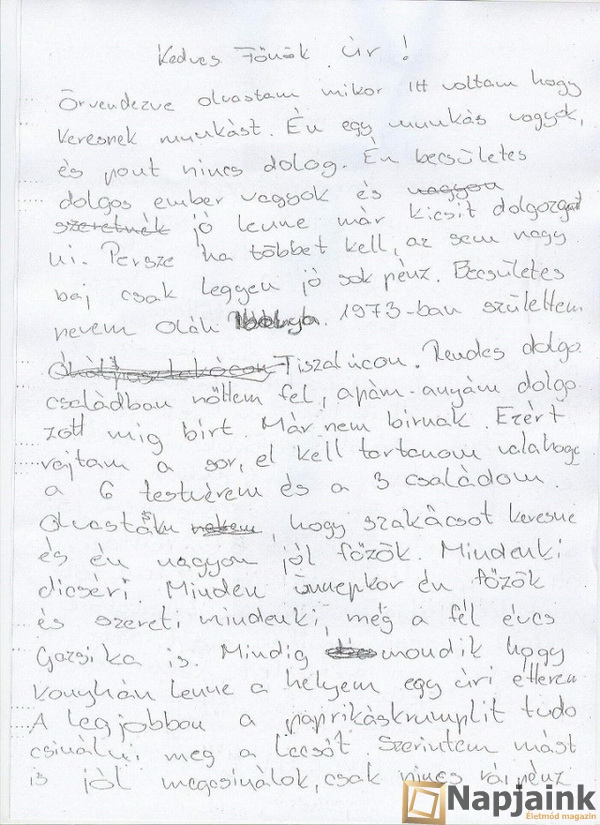 Kedves Főnök úr!
Örvendezve olvastam mikor itt voltam hogy
keresnek munkást. Én egy munkás vagyok,
és pont nincs dolog. Én becsületes
dolgos ember vagyok és nagyon
szeretnék jó lenne már kicsit dolgozgat
ni. Persze ha többet kell, az sem nagy
baj csak leggyen jó sok pénz. Becsületes
nevem Oláh 1973-ban születtem
Tiszalúcon. Rendes dolgo
családban nőttem fel, apám-anyám dolgo
zott míg bírt. Már nem bírnak. Ezért
rajtam a sor, el kell tartanom valahogy
a 6 testvérem és a 3 családom.
Olvasták, hogy szakácsot keresne
és én nagyon jól főzök. Mindenki
dicséri. Minden ünnepkor én főzök
és szereti mindenki, még a fél éves
Gazsika is. Mindig mondik hogy
konyhán lenne a helyem egy úri étterem
A legjobban a paprikáskrumplit tudo
csinálni meg a lecsót. Szerintem mást
is jól megcsinálok, csak nincs rá pénz
Napjaink
Életmód magazin